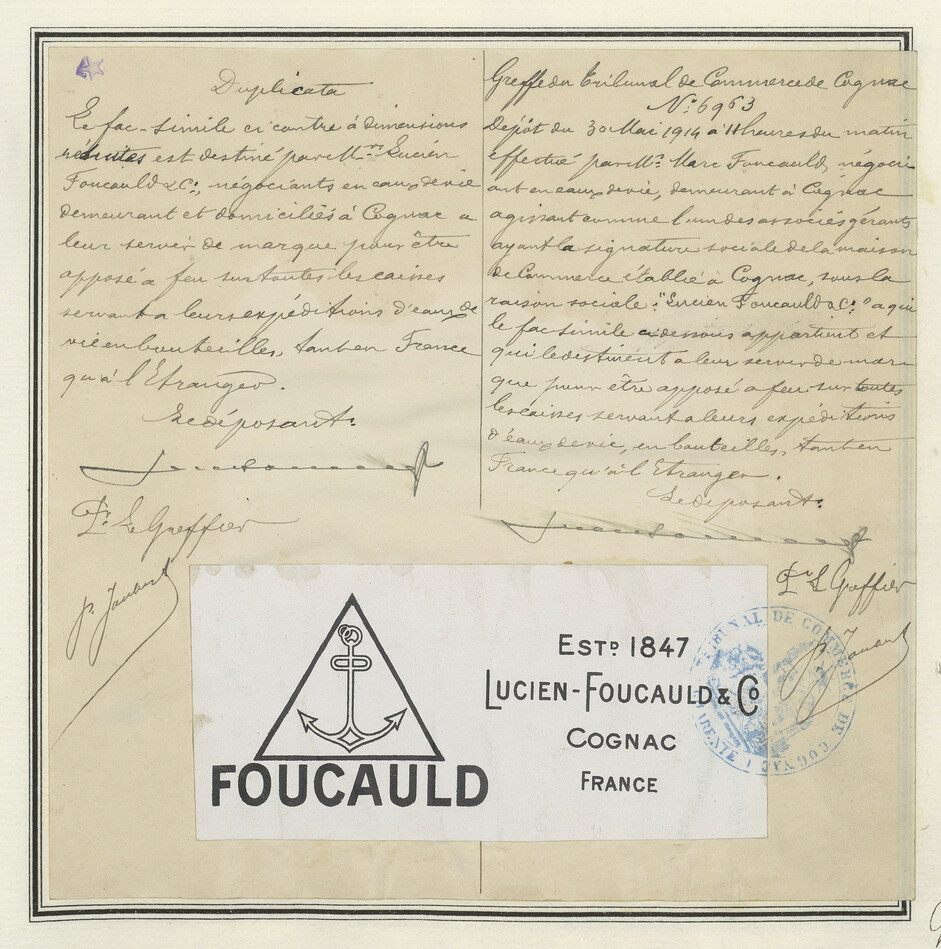 Duplicata
Le fac-simile ci contre à dimensions
réduites est destiné par Mrs Lucien
Foucauld & Cie, négociants en eaux de vie
demeurant et domiciliés à Cognac a
leur servir de marque pour être
apposé a feu sur toutes les caisses
servant a leurs expéditions d'eaux de
vie en bouteilles, tant en France
qu'à l'Etranger.
Le déposant:
Pr. Le Greffier
Greffe du Tribunal de Commerce de Cognac
No 6963
Depôt du 30 Mai 1914 à 11 heures du matin
effectué par Mr. Marc Foucauld, négoci
ant en eaux de vie, demeurant à Cognac
agissant comme l'un des associés gérants
ayant la signature sociale de la maison
de Commerce établie à Cognac, sous la
raison sociale: "Lucien Foucauld & Cie" a qui
le fac-simile ci dessous appartient et
qui le destinent a leur servir de mar-
que pour être apposé a feu sur toutes
les caisses servant a leurs expéditions
d'eaux de vie, en bouteilles, tant en
France qu'à l'Etranger.
Le deposant:
Pr Le Greffier
FOUCAULD
ESTD 1847
LUCIEN-FOUCAULD & CO
COGNAC
FRANCE
TRIBUNAL DE COMMERCE DE COGNAC